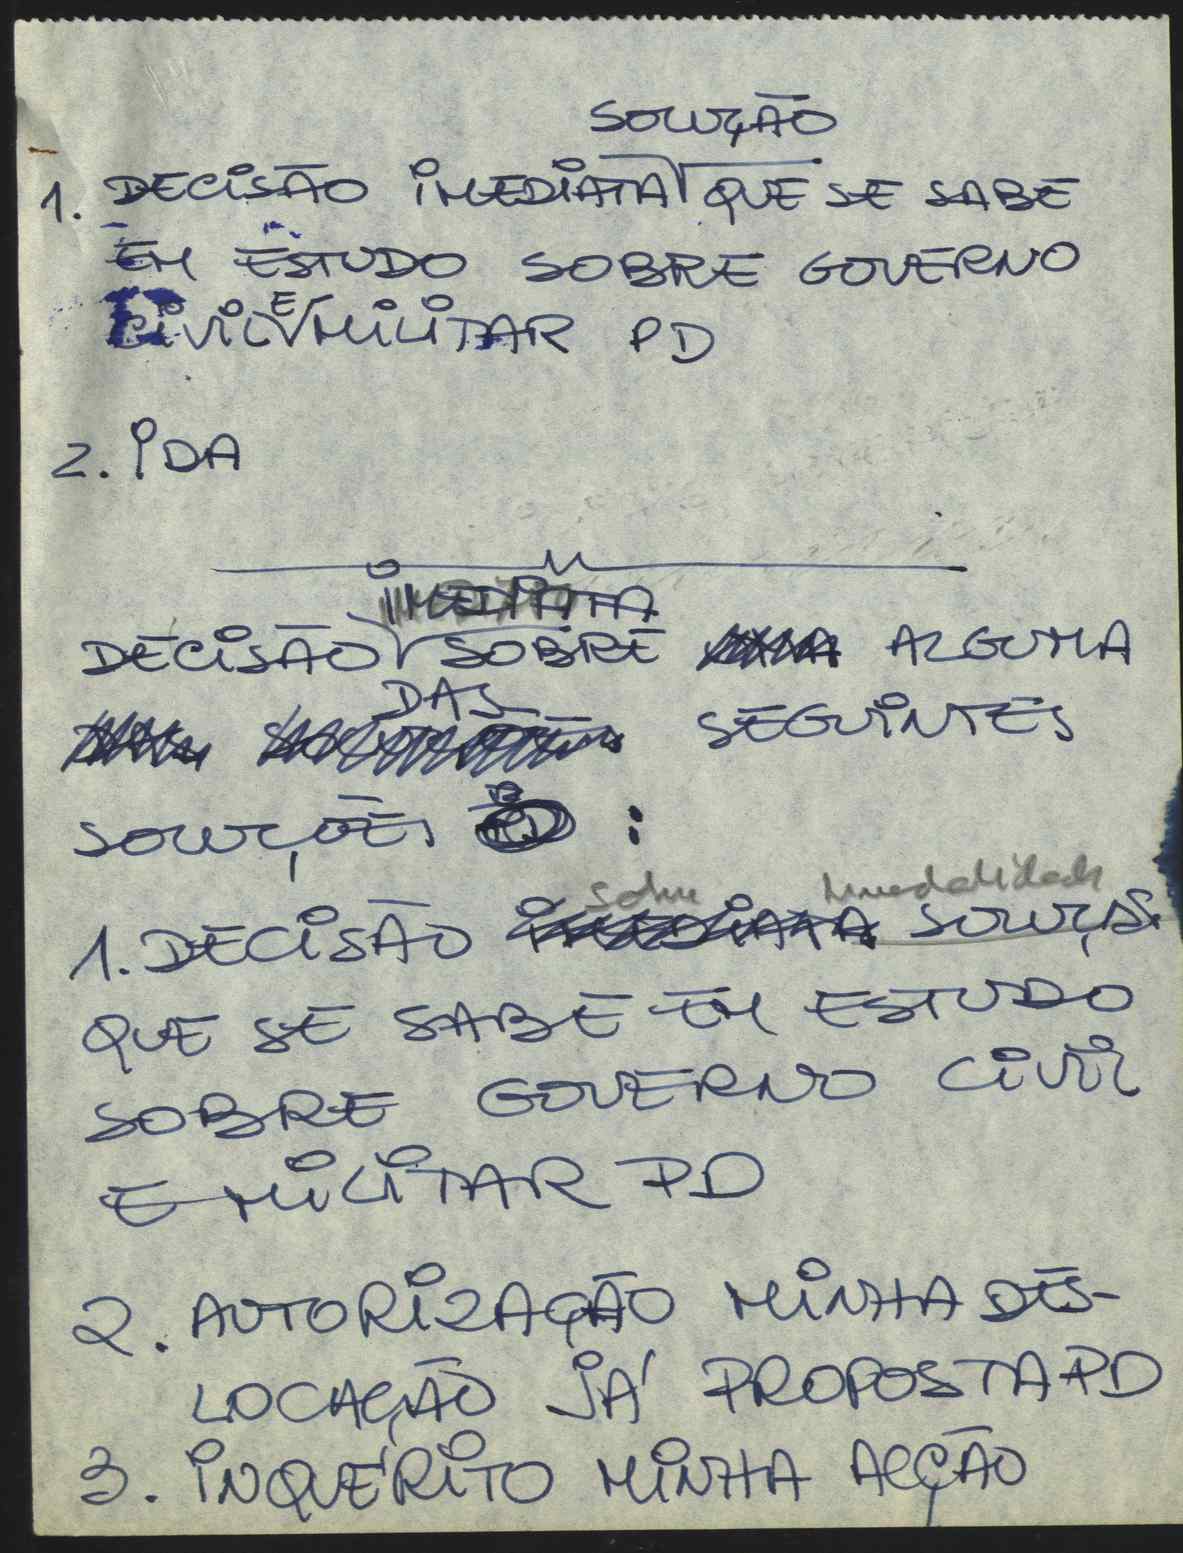 SOLUÇÃO
1. DECISÃO IMEDIATA QUE SE SABE
EM ESTUDO SOBRE GOVERNO
CIVIL E MILITAR PD
2. IDA
IMEDIATA
DECISÃO SOBRE ALGUMA
DAS
SEGUINTES
SOLUÇÕES :
sobre
1. DECISÃO IMEDIATA SOLUÇÃO
QUE SE SABE EM ESTUDO
SOBRE GOVERNO CIVIL
E MILITAR PD
2. AUTORIZAÇÃO MINHA DES-
LOCAÇÃO JÁ PROPOSTA PD
3. INQUÉRITO MINHA ACÇÃO